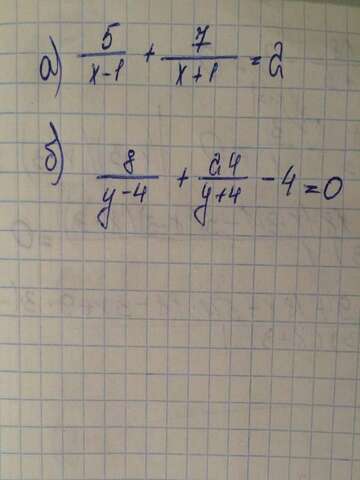 а) 5/(x-1) + 7/(x+1) = 2
б) 8/(y-4) + 24/(y+4) - 4 = 0